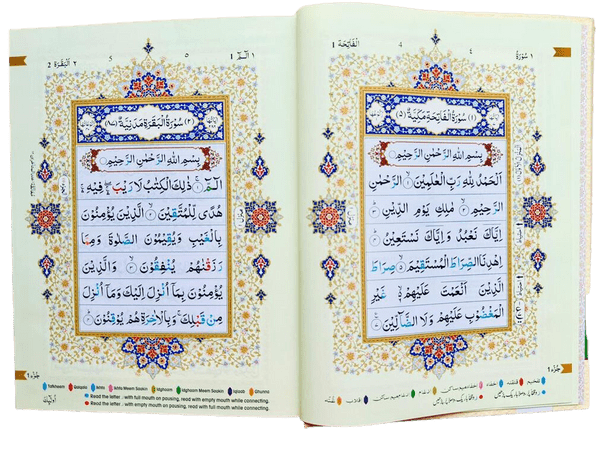 ١ سُوْرَةُ
٤
4
اَلْفَاتِحَة 1
(١) سُوْرَةُ الْفَاتِحَةِ مَكِّيَّةٌ (٥)
بِسْمِ اللّٰهِ الرَّحْمٰنِ الرَّحِيْمِ
اَلْحَمْدُ لِلّٰهِ رَبِّ الْعٰلَمِيْنَ ۙ۱ الرَّحْمٰنِ
الرَّحِيْمِ ۙ۲ مٰلِكِ يَوْمِ الدِّيْنِ ؕ۳
اِيَّاكَ نَعْبُدُ وَ اِيَّاكَ نَسْتَعِيْنُ ؕ۴
اِهْدِنَا الصِّرَاطَ الْمُسْتَقِيْمَ ۙ۵ صِرَاطَ
الَّذِيْنَ اَنْعَمْتَ عَلَيْهِمْ ۙ۶ غَيْرِ
الْمَغْضُوْبِ عَلَيْهِمْ وَ لَا الضَّآلِّيْنَ ۷
١ الٓمّٓ 1
٥
5
٢ اَلْبَقَرَة 2
(٢) سُوْرَةُ الْبَقَرَةِ مَدَنِيَّةٌ (٨٧)
بِسْمِ اللّٰهِ الرَّحْمٰنِ الرَّحِيْمِ
الٓمّٓ ۚ۱ ذٰلِكَ الْكِتٰبُ لَا رَيْبَ ۖۛ فِيْهِ ۛۚ
هُدًى لِّلْمُتَّقِيْنَ ۙ۲ الَّذِيْنَ يُؤْمِنُوْنَ
بِالْغَيْبِ وَ يُقِيْمُوْنَ الصَّلٰوةَ وَ مِمَّا
رَزَقْنٰهُمْ يُنْفِقُوْنَ ۙ۳ وَ الَّذِيْنَ
يُؤْمِنُوْنَ بِمَاۤ اُنْزِلَ اِلَيْكَ وَ مَاۤ اُنْزِلَ
مِنْ قَبْلِكَ ۚ وَ بِالْاٰخِرَةِ هُمْ يُوْقِنُوْنَ ؕ۴
Tafkheem Qalqala Ikhfa Ikhfa Meem Saakin Idghaam Idghaam Meem Saakin Iqlaab Ghunna
Read the letter ر with full mouth on pausing, read with empty mouth while connecting.
Read the letter ر with empty mouth on pausing, read with full mouth while connecting.